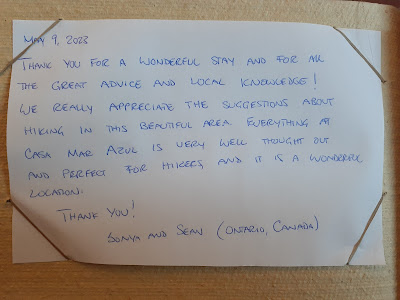 May 9, 2023
Thank you for a wonderful stay and for all
the great advice and local knowledge!
We really appreciate the suggestions about
hiking in this beautiful area. Everything at
Casa Mar Azul is very well thought out
and perfect for hikers, and it is a wonderful
location.
Thank you!
Sonya and Sean (Ontario, Canada)